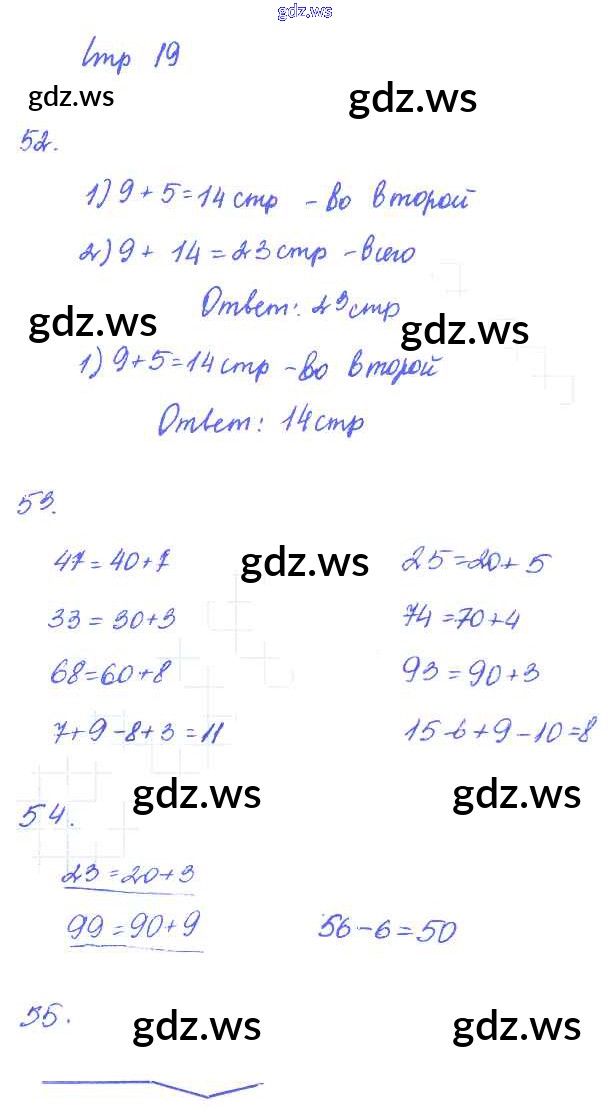 gdz.ws
Стр 19
gdz.ws gdz.ws
52.
1) 9 + 5 = 14 стр - во второй
2) 9 + 14 = 23 стр - всего
Ответ: 23 стр
gdz.ws gdz.ws
1) 9 + 5 = 14 стр - во второй
Ответ: 14 стр
53.
47 = 40 + 7 gdz.ws 25 = 20 + 5
33 = 30 + 3 74 = 70 + 4
68 = 60 + 8 93 = 90 + 3
7 + 9 - 8 + 3 = 11 15 - 6 + 9 - 10 = 8
gdz.ws gdz.ws
54.
23 = 20 + 3
99 = 90 + 9 56 - 6 = 50
55. gdz.ws gdz.ws